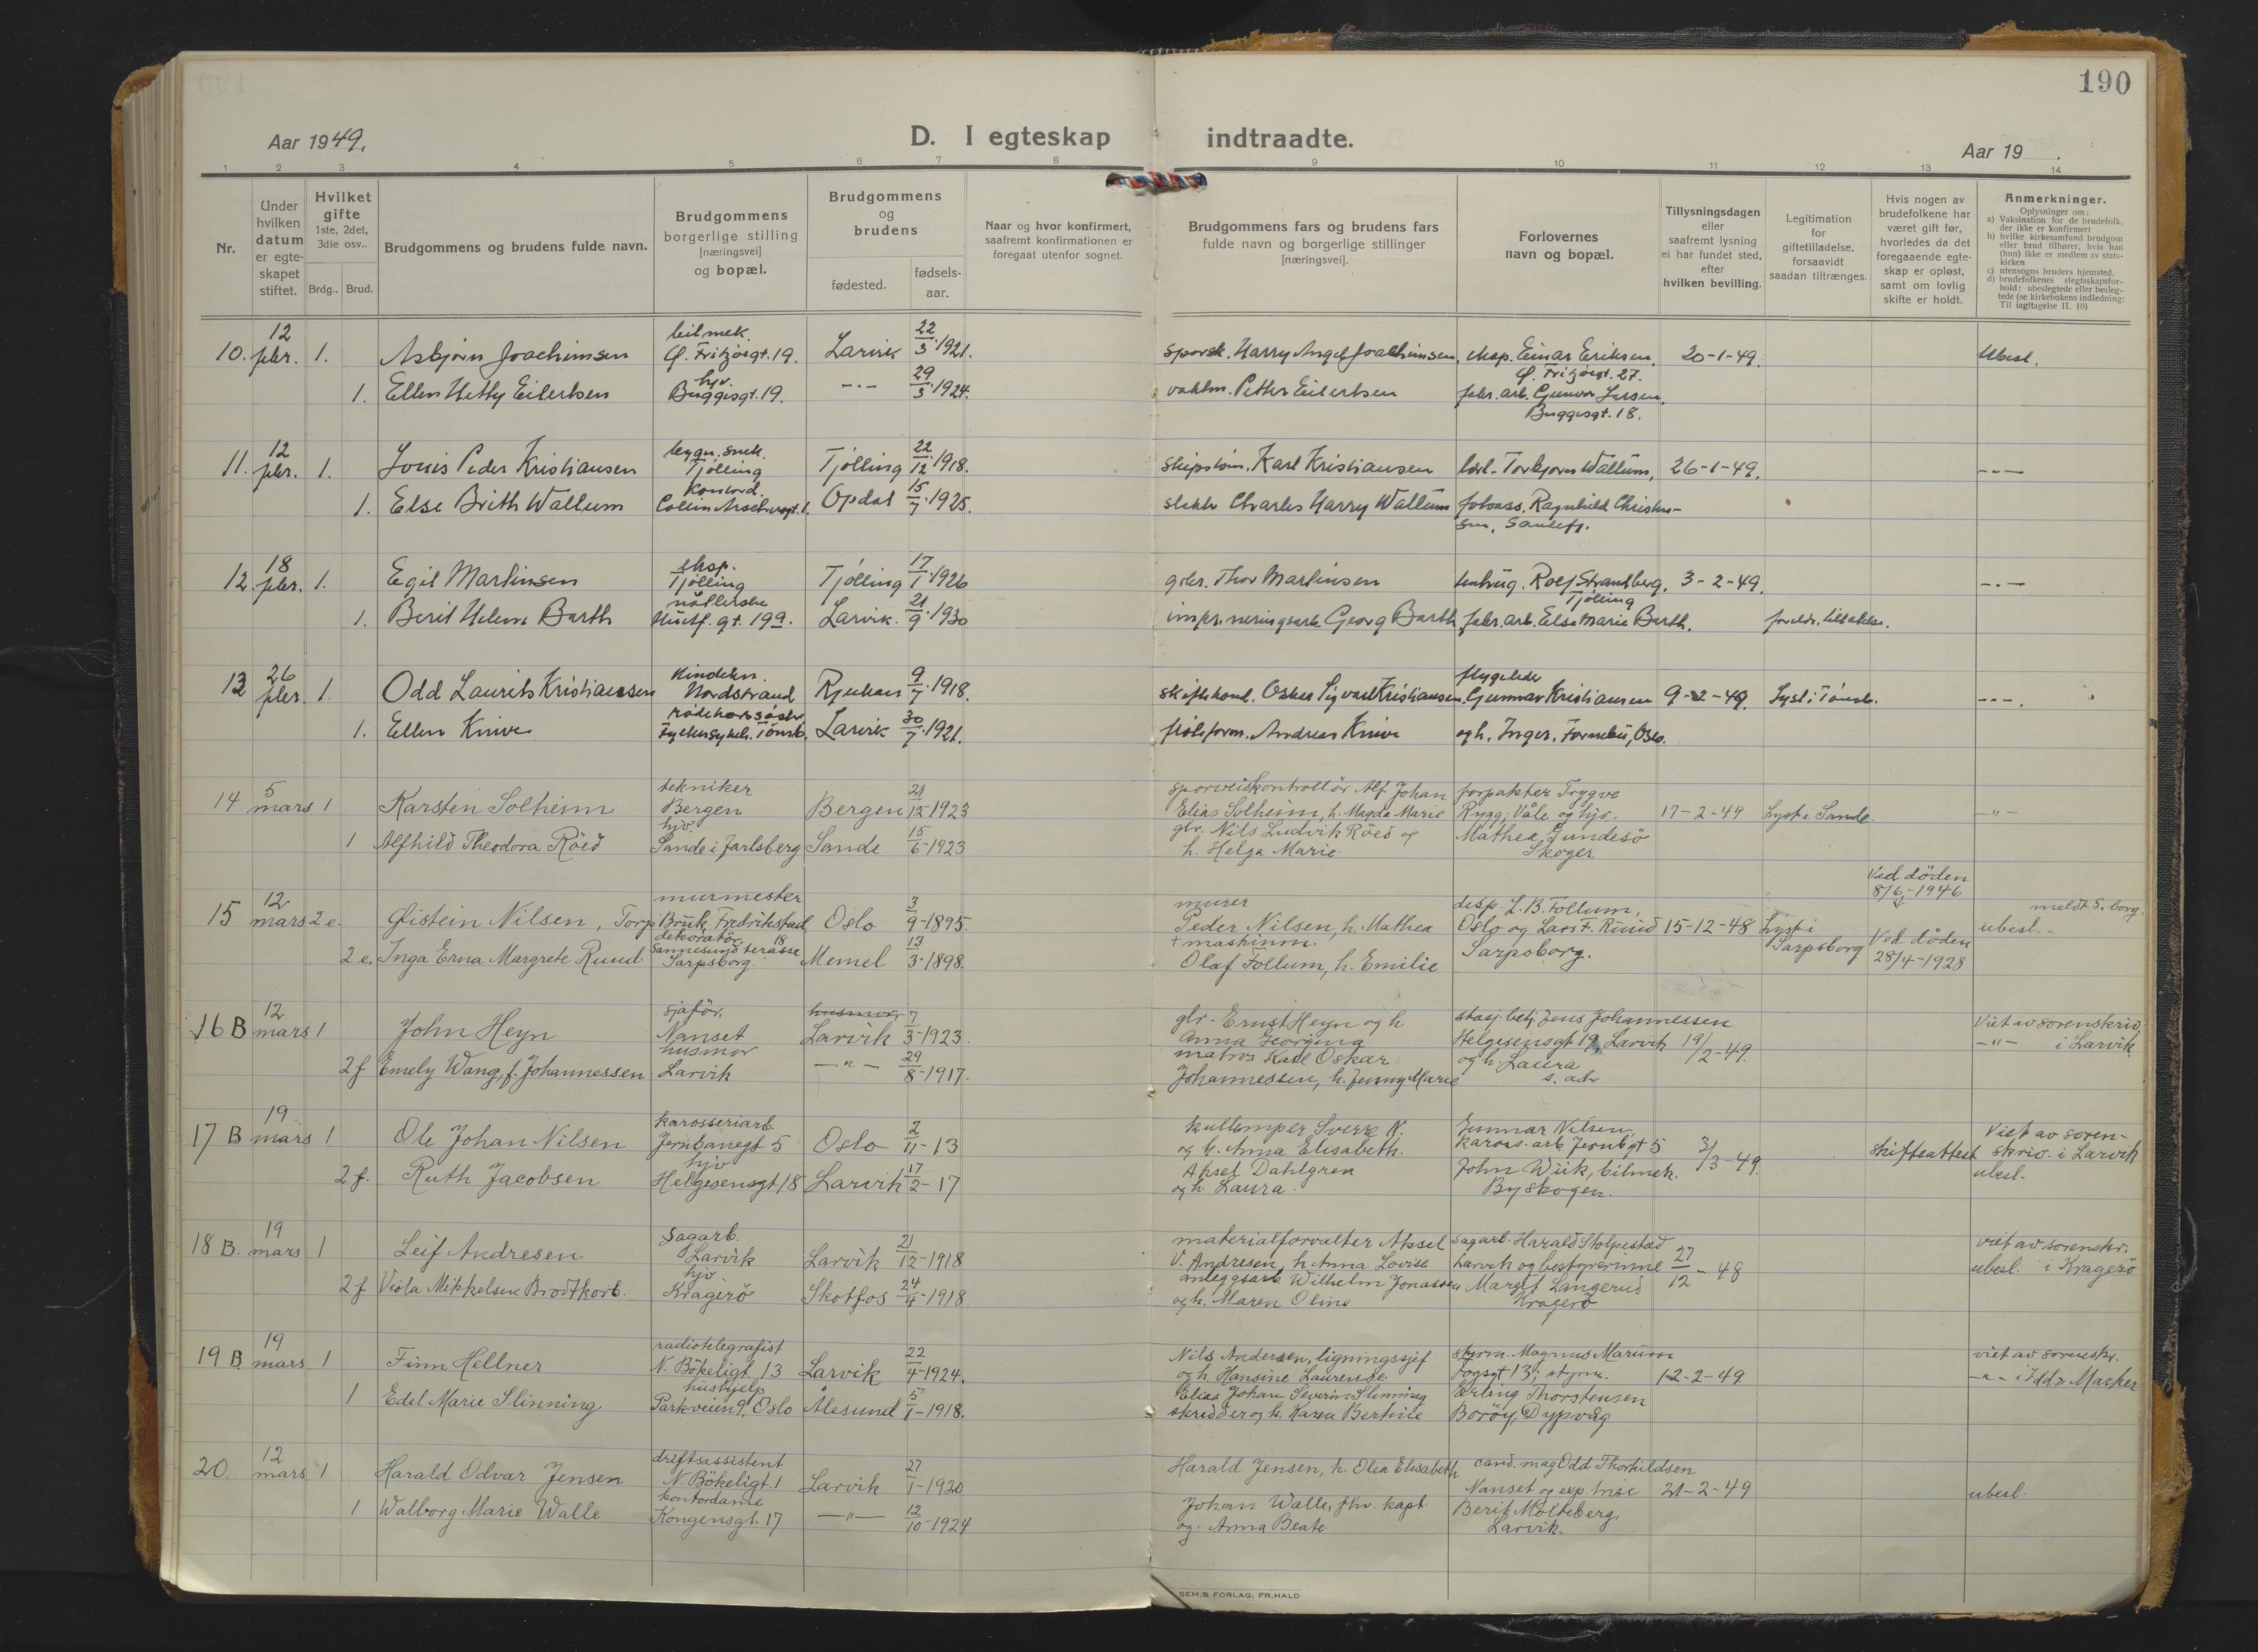 190
Aar 1949.
D. I egteskap indtraadte.
Aar 19 .
1 2 3 4 5 6 7 8 9 10 11 12 13 14
Nr.
Under hvilken datum er egte-skapet stiftet.
Hvilket gifte 1ste, 2det, 3die osv..
Brdg.. Brud.
Brudgommens og brudens fulde navn.
Brudgommens borgerlige stilling [næringsvei] og bopæl.
Brudgommens og brudens
fødested.
fødsels-aar.
Naar og hvor konfirmert, saafremt konfirmationen er foregaat utenfor sognet.
Brudgommens fars og brudens fars fulde navn og borgerlige stillinger [næringsvei].
Forlovernes navn og bopæl.
Tillysningsdagen eller saafremt lysning ei har fundet sted, efter hvilken bevilling.
Legitimation for giftetilladelse, forsaavidt saadan tiltrænges.
Hvis nogen av brudefolkene har været gift før, hvorledes da det foregaaende egte-skap er opløst, samt om lovlig skifte er holdt.
Anmerkninger.
Oplysninger om:
a) Vaksination for de brudefolk, der ikke er konfirmert
b) hvilke kirkesamfund brudgom eller brud tilhører, hvis han (hun) ikke er medlem av stats-kirken
c) utensogns bruders hjemsted.
d) brudefolkenes slegtsskapsfor-hold: ubeslegtede eller besleg-tede (se kirkebokens indledning: Til iagttagelse II. 10)
10. 12 febr. 1. Asbjørn Joachimsen bilmek. Ø. Fritzøegt. 19. Larvik 22/3.1921. Harry Angel Joachimsen, eksp. Einar Eriksen, Ø. Fritzøegt. 27. 20-1-49. Ubesl.
1. Ellen Hetty Eilertsen hjv. Buggesgt. 19. -"- 29/3.1924. vaktm. Petter Eilertsen fabr. arb. Gunvor Larsen, Buggesgt. 18.
11. 12 febr. 1. Louis Peder Kristiansen bygn. snek. Tjølling Tjølling 22/12.1918. skipstøm. Karl Kristiansen Torbjørn Wallum, 26-1-49. -"-
1. Else Brith Wallum Opdal 15/7.1925. Charles Harry Wallum Ragnhild Christensen, Sandefj.
12. 18 febr. 1. Egil Martinsen eksp. Tjølling Tjølling 17/1.1926 gbr. Thor Martinsen Rolf Strandberg, Tjølling 3-2-49. -"-
1. Berit Helene Barth gt. 199. Larvik. 21/9.1930 Georg Barth fabr. arb. Else Marie Barth. foreldr. tillatelse.
13 26 febr. 1. Odd Laurits Kristiansen Nordstrand Rjukan 9/7.1918. Oskar Sigvart Kristiansen flygeleder Gunnar Kristiansen 9-2-49. Lyst i Tønsb. -"-
1. Ellen Knive Larvik 30/7.1921. Andreas Knive og h. Inger, Fornebu, Oslo.
14 5 mars 1 Karsten Solheim tekniker Bergen Bergen 21/12-1923 sporveiskontrollör Alf Johan Elias Solheim, h. Magda Marie forpakter Trygve Rygg, Våle og hjv. 17-2-49 Lyst i Sande -"-
1 Alfhild Theodora Röed hjv. Sande i Jarlsberg Sande 15/6-1923 gbr. Nils Ludvik Röed og h. Helga Marie Mathea Gundesö Skoger
15 12 mars 2 e. Øistein Nilsen, murmester Torp Bruk, Fredrikstad Oslo 3/9-1895. murer Peder Nilsen, h. Mathea desp. L. B. Follum, Oslo og Lars F. Ruud 15-12-48 Lyst i Sarpsborg Ved döden 8/6-1946 meldt S. borg. ubesl.-
2 e. Inga Erna Margrete Ruud dekoratör Sannesund terasse 18 Sarpsborg Memel 13/3-1898. + maskinm. Olaf Follum, h. Emilie Sarpsborg. Ved döden 28/4-1928
16 B 12 mars 1 John Heyn sjaför. Nanset Larvik 7/3-1923. gbr- Ernst Heyn og h Anna Georgina stasj. betj. Jens Johannessen Helgesensgt 19, Larvik 19/2-49. Viet av sorenskriv. i Larvik
2 f Emely Wang, f. Johannessen husmor Larvik -"- 29/8-1917. matros Karl Oskar Johannessen, h. Jenny Marie og h. Laura s. adr -"-
17 B 19 mars 1 Ole Johan Nilsen karosseriarb. Jernbanegt 5 Oslo 2/11-13 kullemper Sverre N. og h. Anna Elisabeth. Gunnar Nilsen, karos. arb Jernb gt 5 3/3-49. skifteattest Viet av soren-skriv. i Larvik
2 f. Ruth Jacobsen hjv Helgesensgt 18 Larvik 17/2-17 Aksel Dahlgren og h. Laura. John Wiik, bilmek. Byskogen. ubesl.
18 B. 19 mars 1 Leif Andresen Sagarb. Larvik Larvik 21/12-1918 materialforvalter Aksel V. Andresen, h Anna Lovise sagarb. Harald Stolpestad Larvik og bestyrerinne 27/12-48 viet av sorenskr. i Kragerö
2 f Viola Mikkelsen Brodtkorb. hjv Kragerö Skotfos 24/4-1918 anleggsarb Wilhelm Jonassen og h. Maren Oline Margit Langerud Kragerö ubesl.
19 B 19 mars 1 Finn Hellner radiotelegrafist N. Bökeligt 13 Larvik 22/4-1924. Nils Andersen, ligningssjef og h. Hansine Laurense Magnus Marum 12-2-49 viet av sorenskr. i Iddn Marker
1 Edel Marie Slinning hushjelp Parkveien 9, Oslo Ålesund 5/1-1918. Elias Johan Severin Slinning skredder og h. Karen Bertine Erling Thorstensen Boröy, Dypvåg
20. 12 mars 1 Harald Odvar Jensen driftsassistent N. Bökeligt. 1 Larvik 27/1-1920 Harald Jensen, h. Olea Elisabeth cand. mag Odd Thorkildsen Nanset og exp. trise 21-2-49 ubesl.
1 Walborg Marie Walle kontordame Kongensgt. 17 -"- 12/10-1924 Johan Walle, fhv. kapt og. Anna Beate Berit Molteberg, Larvik.
SEM.S FORLAG, FR.HALD